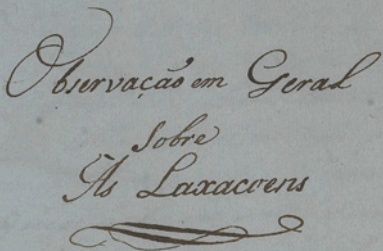 Observação em Geral
Sobre
As Laxacoens